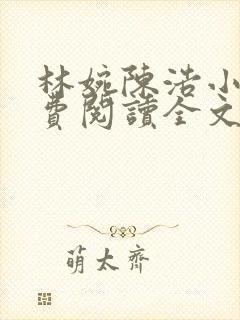 林婉陳浩小
費閱讀全文
萌太齊